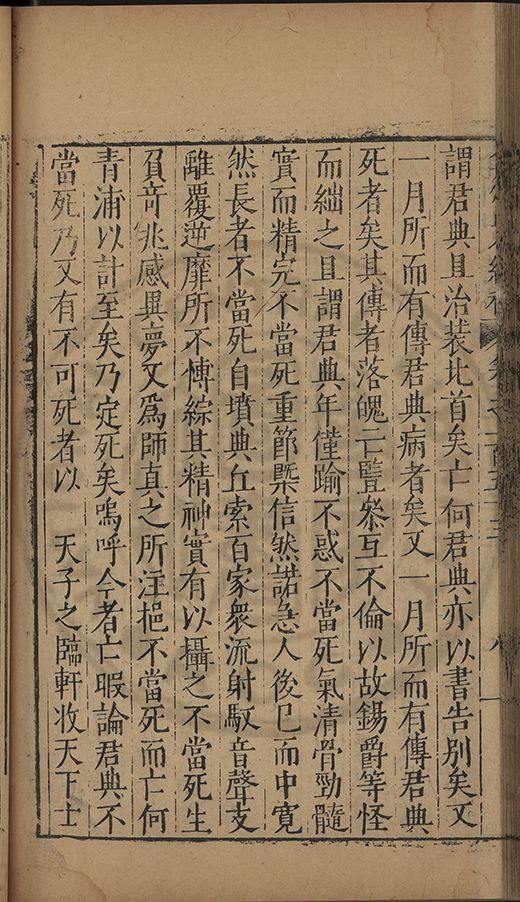 謂君典且治裝北首矣亡何君典亦以書告別矣又
一月所而有傳君典病者矣又一月所而有傳君典
死者矣其傳者落魄亡豎叅互不倫以故錫爵等怪
而絀之且謂君典年僅踰不惑不當死氣清骨勁髓
實而精完不當死重節槩信然諾急人後巳而中寛
然長者不當死自墳典丘索百家衆流射馭音聲支
離覆逆靡所不愽綜其精神實有以攝之不當死生
負竒兆感異夢又爲師真之所注挹不當死而亡何
青浦以計至矣乃定死矣嗚呼今者亡暇論君典不
當死乃又有不可死者以　天子之臨軒收天下士